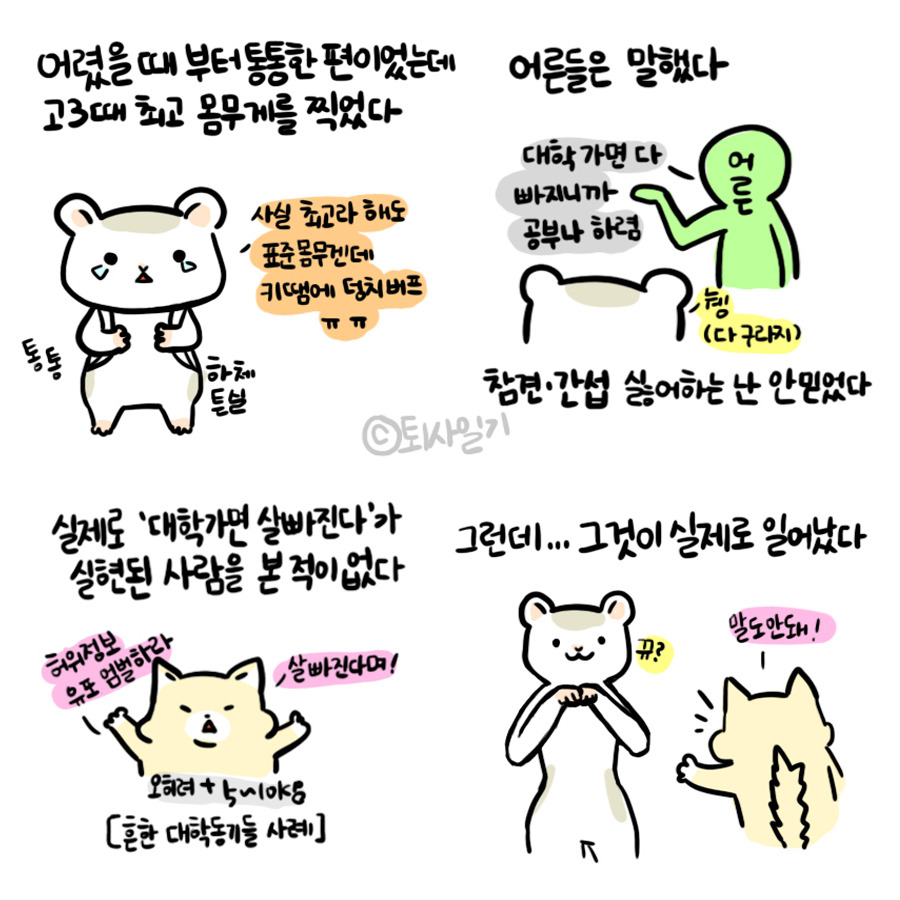 어렸을때 부터 통통한 편이었는데
고3때 최고 몸무게를 찍었다
사실 최고라 해도
표준몸무겐데
키땜에 덩치버프
ㅠㅠ
통통
하체
튼실
어른들은 말했다
대학가면 다
빠지니까
공부나 하렴
어른
웽
(다 구라지)
참견·간섭 싫어하는 난 안믿었다
©퇴사일기
실제로 '대학가면 살빠진다'가
실현된 사람을 본 적이 없다
허위정보
유포 엄벌하라
살빠진다며!
오히려 +
[흔한 대학동기들 사례]
그런데... 그것이 실제로 일어났다
뀨?
말도안돼!